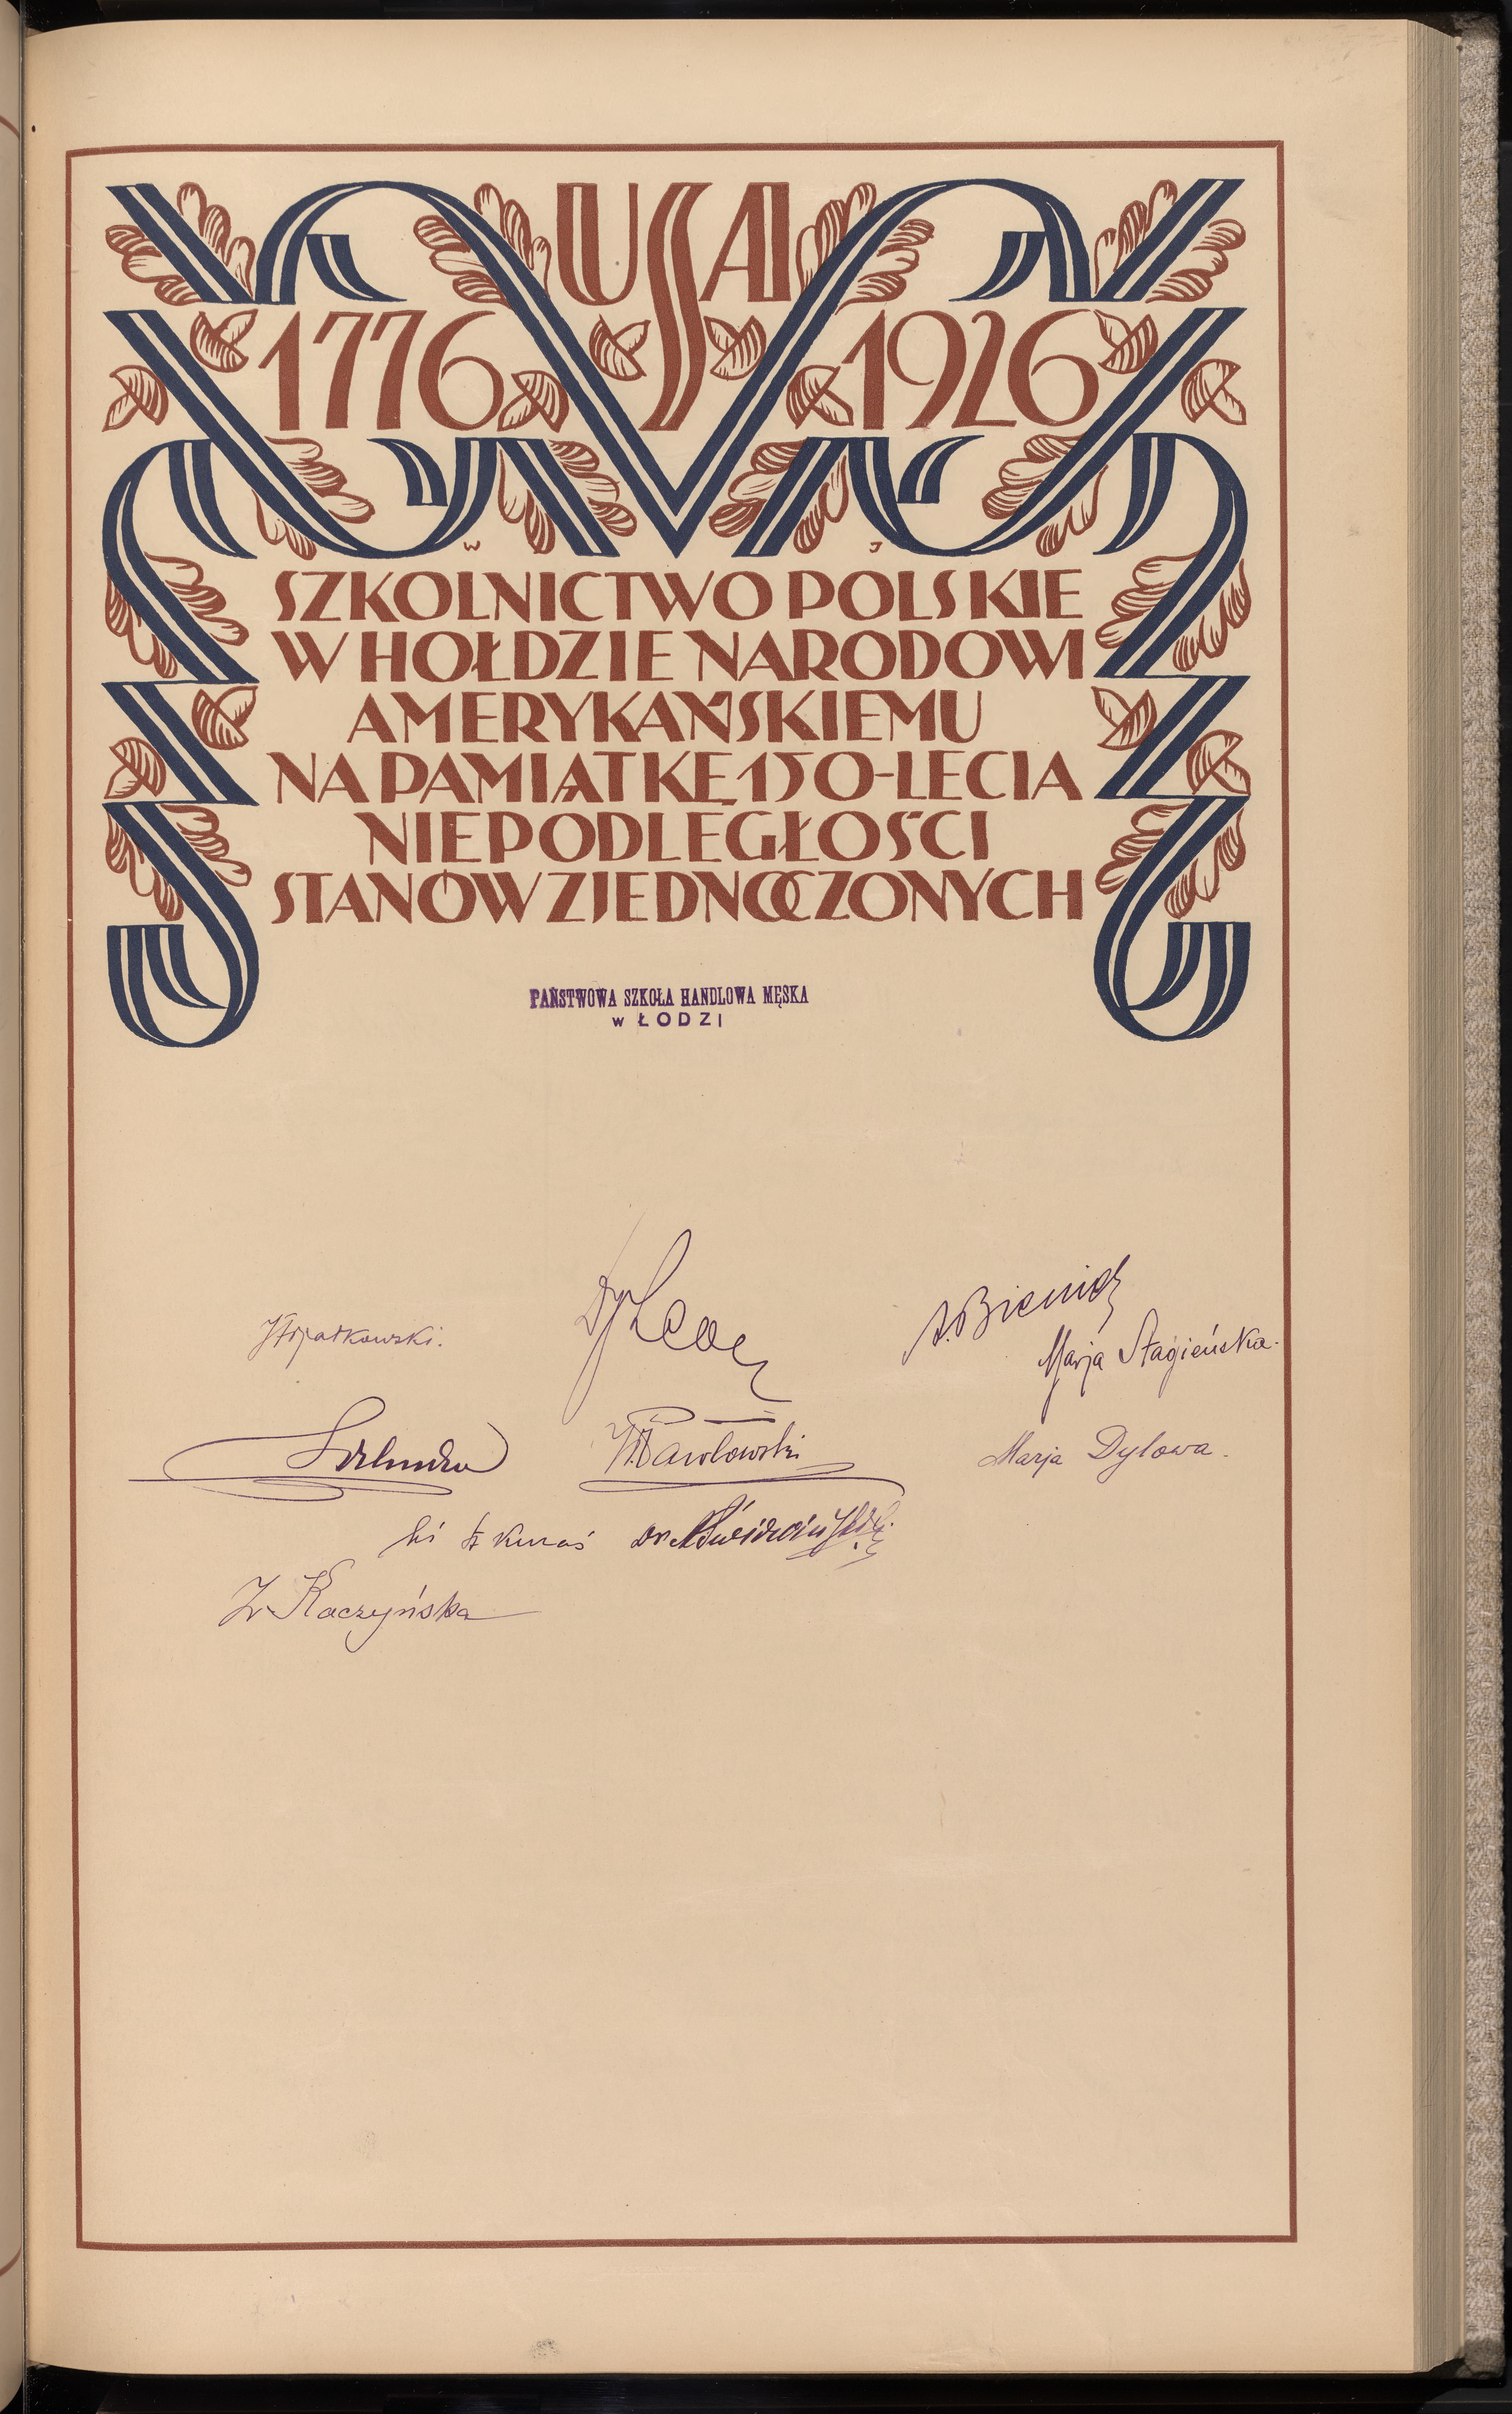 USA
1776 1926
W J
SZKOLNICTWO POLSKIE
W HOŁDZIE NARODOWI
AMERYKAŃSKIEMU
NA PAMIĄTKĘ 150-LECIA
NIEPODLEGŁOŚCI
STANÓW ZJEDNOCZONYCH
PAŃSTWOWA SZKOŁA HANDLOWA MĘSKA
w ŁODZI
Marja Stagieńska.
Pawłowski
Marja Dylowa.
Kuraś
Kaczyńska